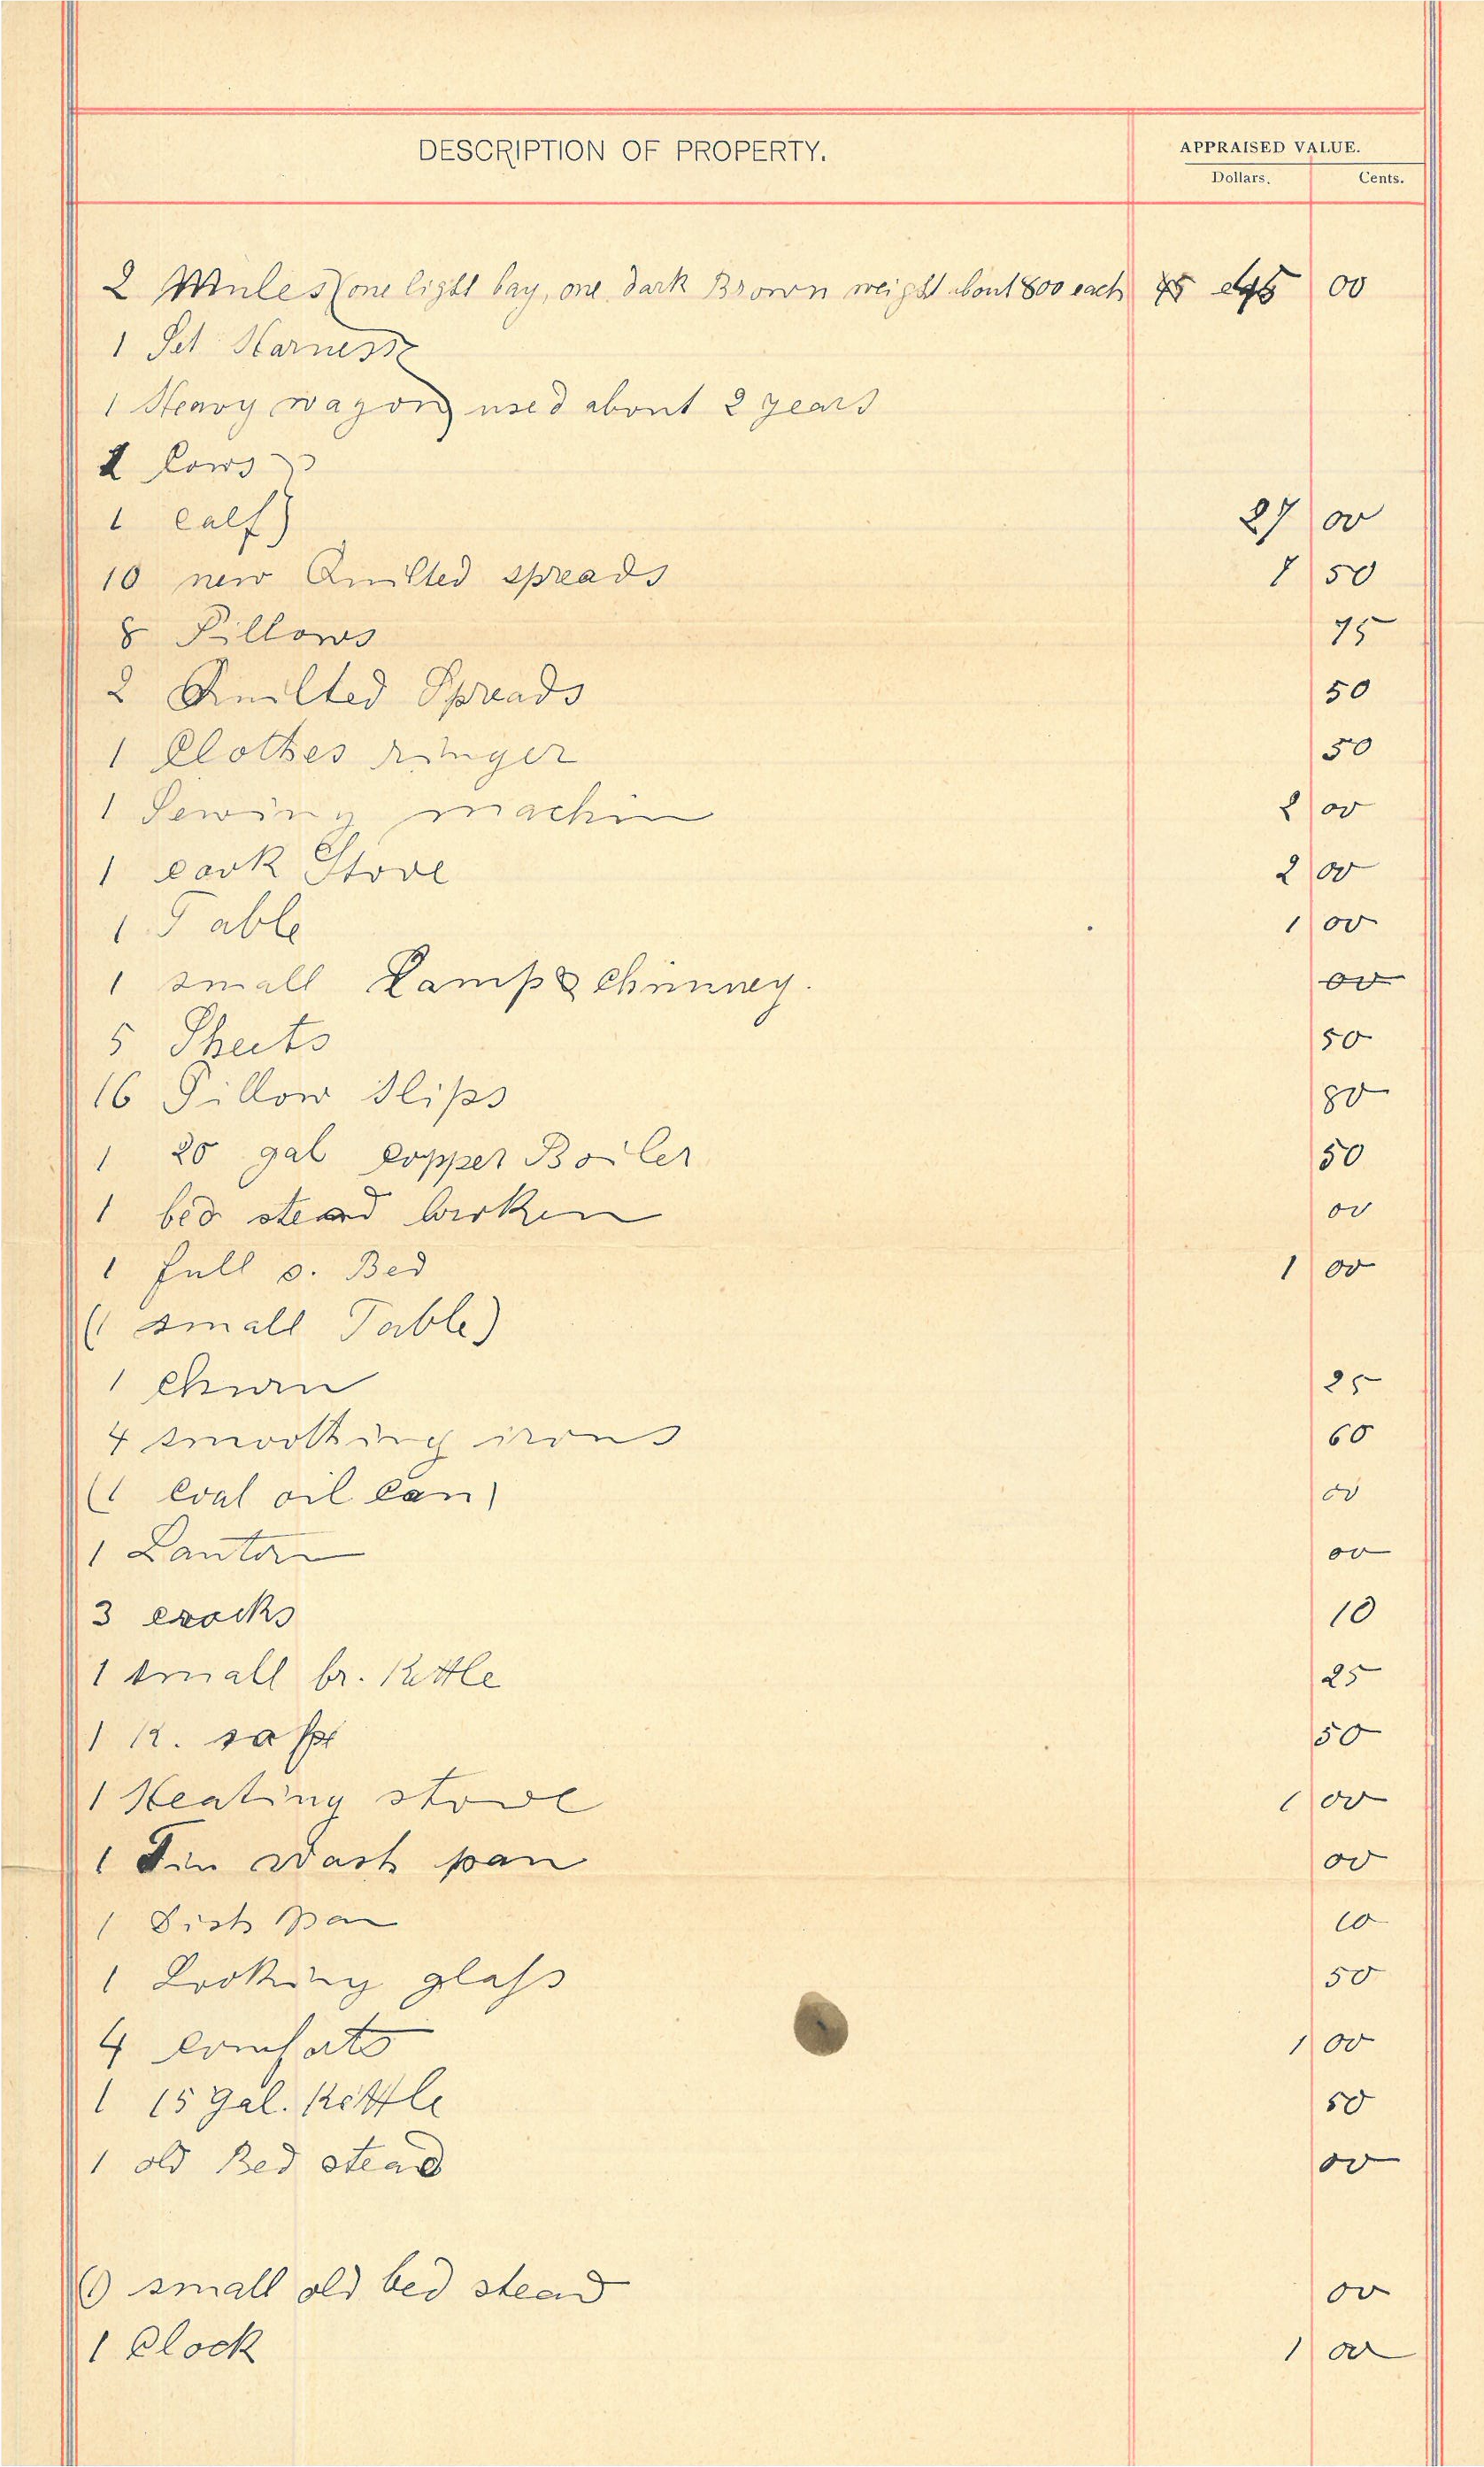 DESCRIPTION OF PROPERTY.
APPRAISED VALUE.
Dollars. Cents.
2 Mules (one light bay, one dark Brown weight about 800 each) 00
1 Set Harness
1 Heavy wagon) used about 2 years
2 Cows
1 calf) 27 00
10 new Quilted spreads 7 50
8 Pillows 75
2 Quilted Spreads 50
1 Clothes ringer 50
1 Sewing machin 2 00
1 cook Stove 2 00
1 Table 1 00
1 small Lamp & Chimney. 00
5 Sheets 50
16 Pillow Slips 80
1 20 gal copper Boiler 50
1 bed stead broken 00
1 full s. Bed 1 00
(1 small Table)
1 churn 25
4 smoothing irons 60
(1 Coal oil can) 00
1 Lantern 00
3 crocks 10
1 small br. Kettle 25
1 K. safe 50
1 Heating stove 1 00
1 Tin wash pan 00
1 Dish pan 10
1 Looking glass 50
4 comforts 1 00
1 15 gal. Kettle 50
1 old Bed stead 00
(1) small old bed stead 00
1 Clock 1 00